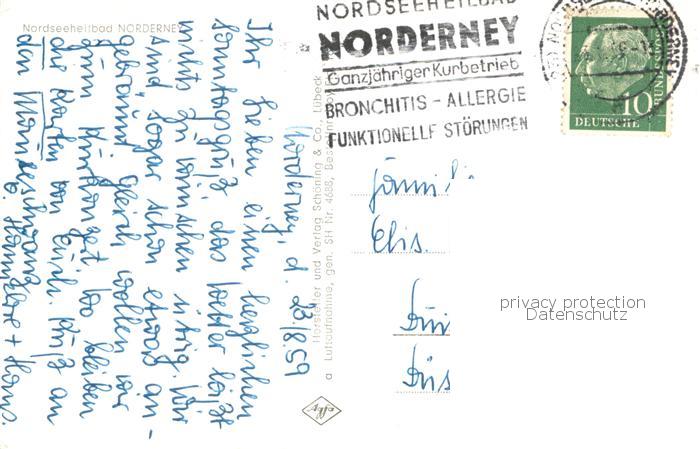 Nordseeheilbad NORDERNEY
NORDSEEHEILBAD
NORDERNEY
Ganzjähriger Kurbetrieb
BRONCHITIS - ALLERGIE
FUNKTIONELLE STÖRUNGEN
10
DEUTSCHE
BUNDESPOST
Norderney, d. 23.8.59
Ihr Lieben einen herzlichen
Sonntagsgruß, das Wetter läßt
nichts zu wünschen übrig. Wir
sind sogar schon etwas an-
gebräunt gleich wollen wir
zum Kurkonzert wo bleiben
die Karten von Euch. Gruß an
den
Hersteller und Verlag Schöning & Co., Lübeck
Luftaufnahme, gen. SH Nr. 4688, Bes.
Agfa
Famil
Elis.
Düs
privacy protection
Datenschutz